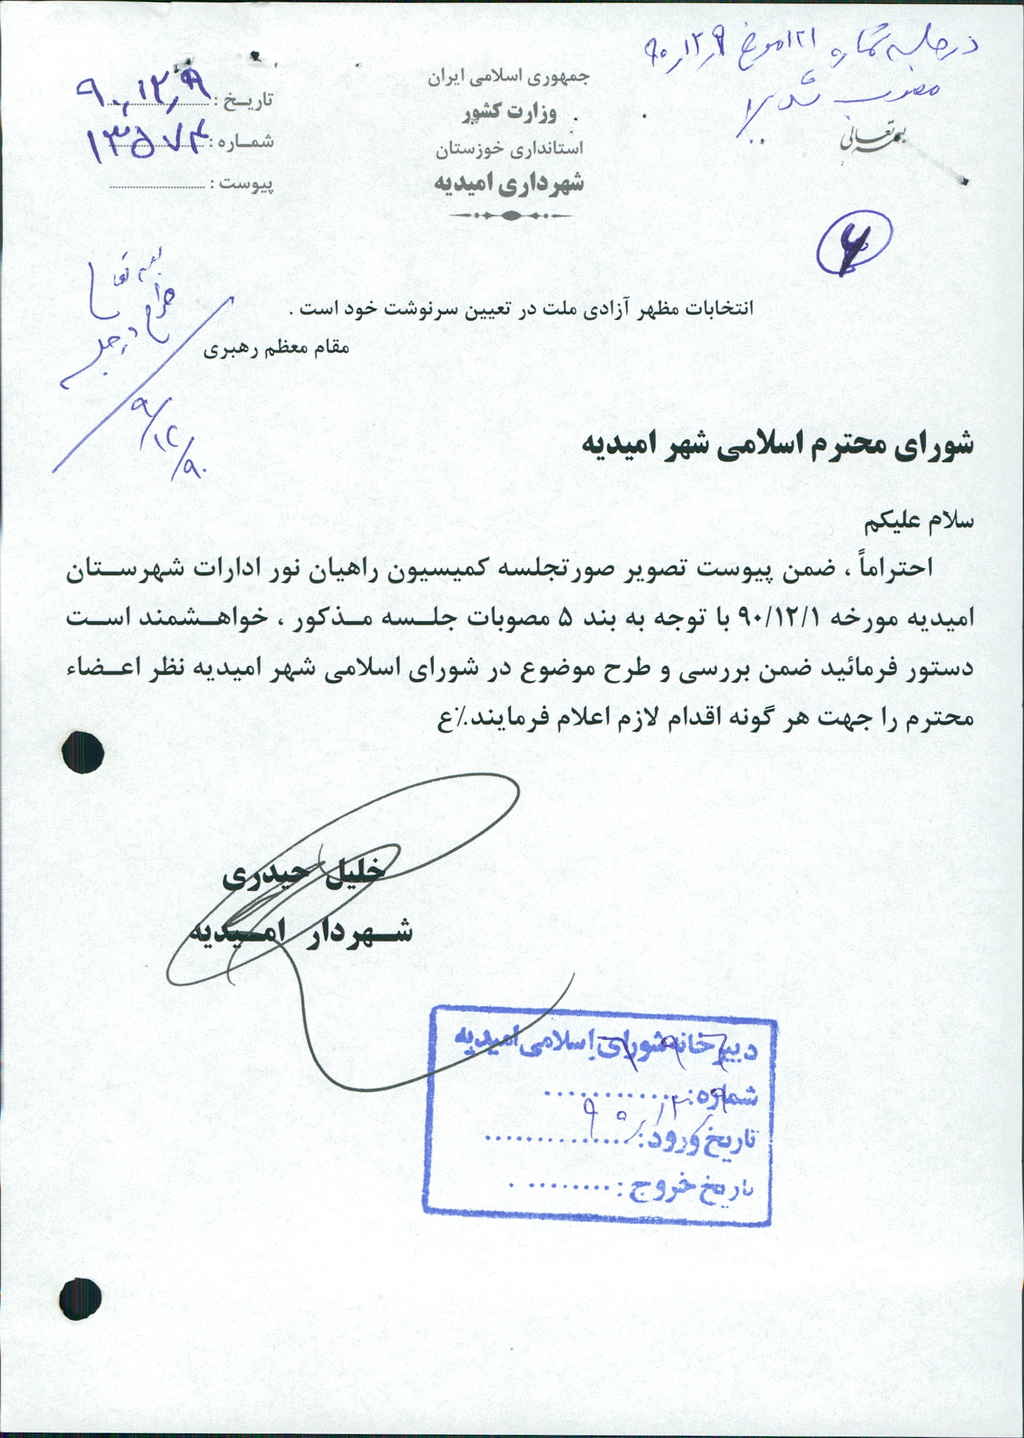 در جلسه شماره ۱۲۱ مورخ ۹۰،۱۲،۹
مصوب شد
بسمه تعالی
جمهوری اسلامی ایران
وزارت کشور
استانداری خوزستان
شهرداری امیدیه
تاریخ : ۹۰،۱۲،۹
شماره : ۱۳۵۷۴
پیوست :
بسمه تعالی
طرح در جلسه
۹۰/۱۲/۹
انتخابات مظهر آزادی ملت در تعیین سرنوشت خود است .
مقام معظم رهبری
شورای محترم اسلامی شهر امیدیه
سلام علیکم
احتراماً ، ضمن پیوست تصویر صورتجلسه کمیسیون راهیان نور ادارات شهرستان
امیدیه مورخه ۹۰/۱۲/۱ با توجه به بند ۵ مصوبات جلسه مذکور ، خواهشمند است
دستور فرمائید ضمن بررسی و طرح موضوع در شورای اسلامی شهر امیدیه نظر اعضاء
محترم را جهت هر گونه اقدام لازم اعلام فرمایند.٪ع
خلیل حیدری
شهردار امیدیه
دبیرخانه شورای اسلامی امیدیه
شماره:
تاریخ ورود: ۹۰،۱۲،۹
تاریخ خروج: